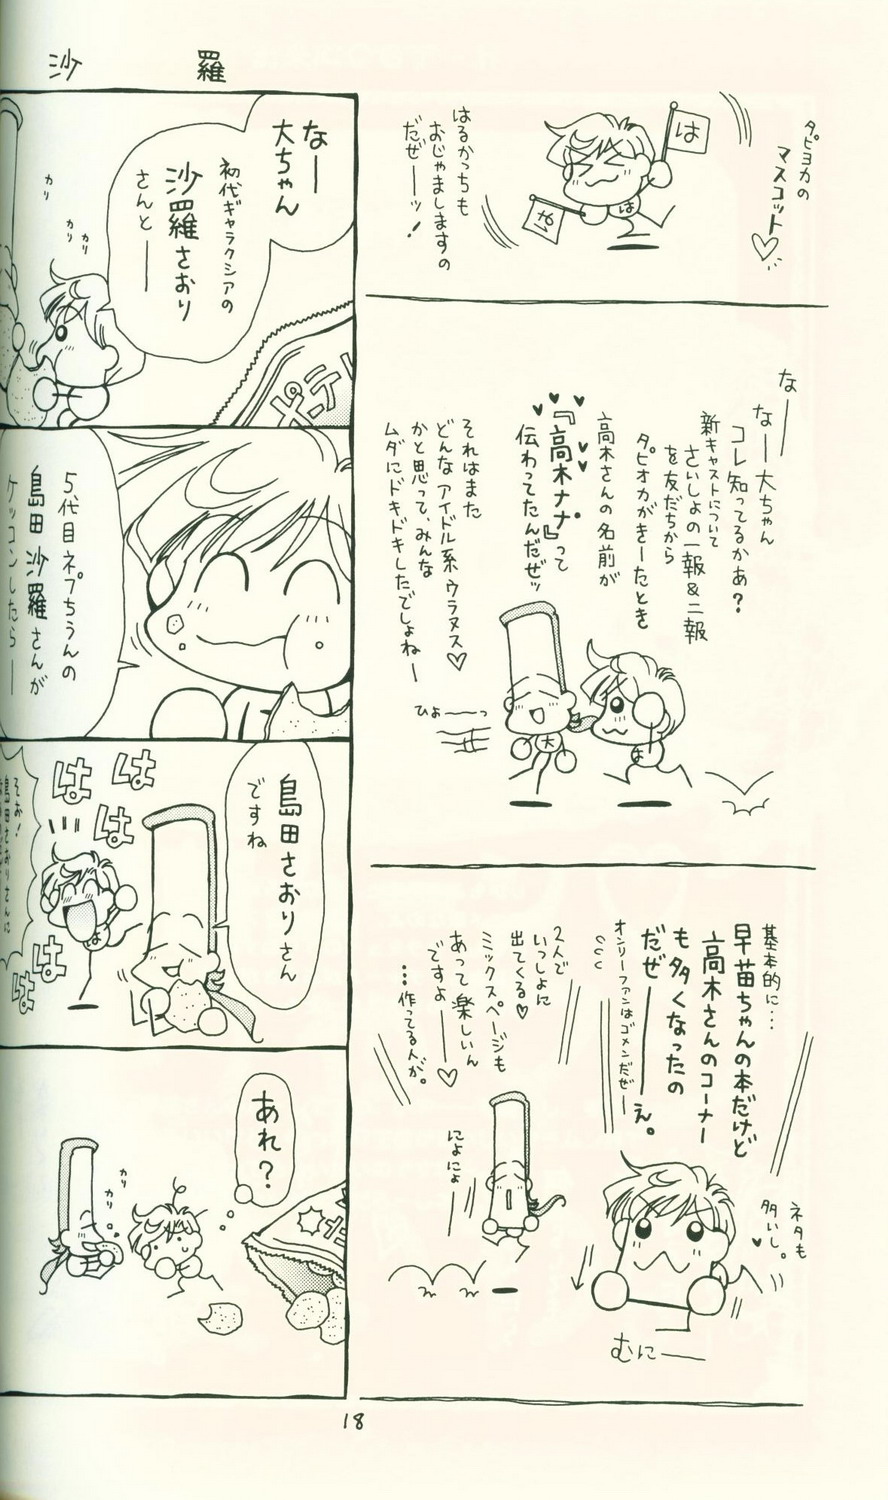 タピヨカの
マスコット♡
は
や
は
はるかっちも
おじゃましますの
だぜーーッ!
なーー
なー大ちゃん
コレ知ってるかあ?
新キャストについて
さいしょの一報&二報
を友だちから
タピオカがきーたとき
高木さんの名前が
『高木ナナ』って
伝わってたんだぜッ
それはまた
どんなアイドル系ウラヌス♡
かと思って、みんな
ムダにドキドキしたでしょねー
ひょーーっ
大
は
基本的に…
早苗ちゃんの本だけど
高木さんのコーナー
も多くなったの
だぜーーーえ。
オンリーファンはゴメンだぜー
ネタも
多いし。
むにーー
2人で
いっしょに
出てくる♥
ミックスページも
あって楽しいん
ですよーー♡
…作ってる人が。
によによーー
沙羅
なー
大ちゃん
初代ギャラクシアの
沙羅さおり
さんとーー
カリ
カリ
カリ
ポテト
5代目ネプちうんの
島田沙羅さんが
ケッコンしたらーー
島田さおりさん
ですね
は
は
は
は
は
は
そお!
島田さおりさんに
あれ?
カリ
カリ
18